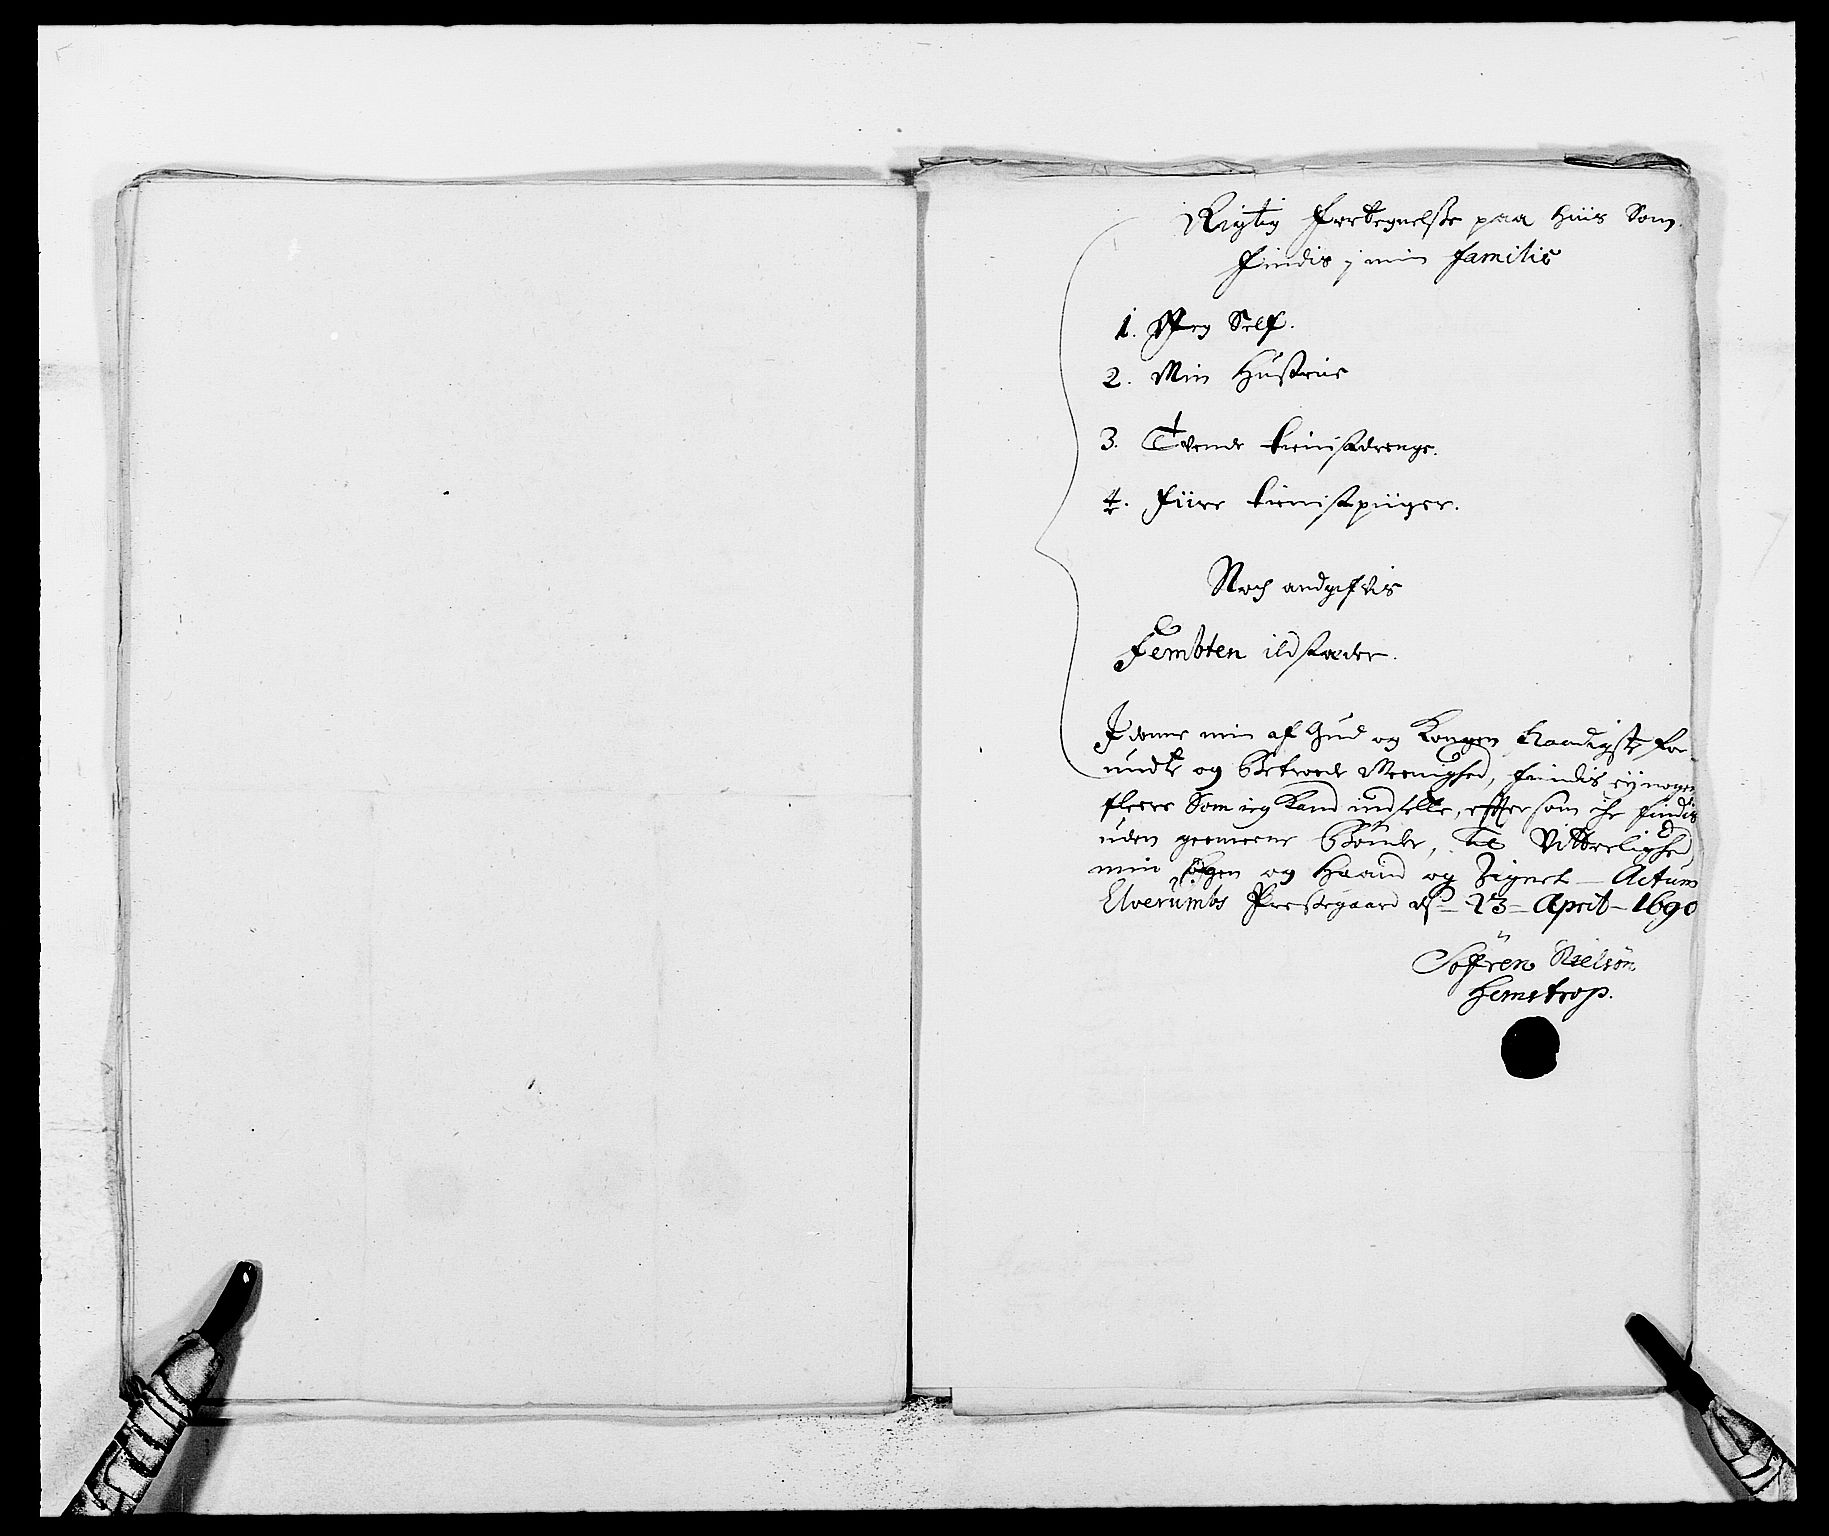 Rigtig Fortegnelsse paa Huis Som
findis j min familie
1. Jeg Self.
2. Min Hustrue
3. Tvende tienistdrenge.
4. Fiire tienistpiiger.
Noch andgifvis
Fembten ildstæder.
I denne min af Gud og Kongen Naadigste for
undte og Betroede Meenighed, findis ey nogen
fleere Som ieg Kand indstille, efftersom ihr findis
uden gemeene Bønder, Til Vitterlighed
min Egen og Haand og Zignet – Actum
Elverumbs Prestegaard dh – 23 – April – 1690
Søffren Nielsøn
Hemstrop.